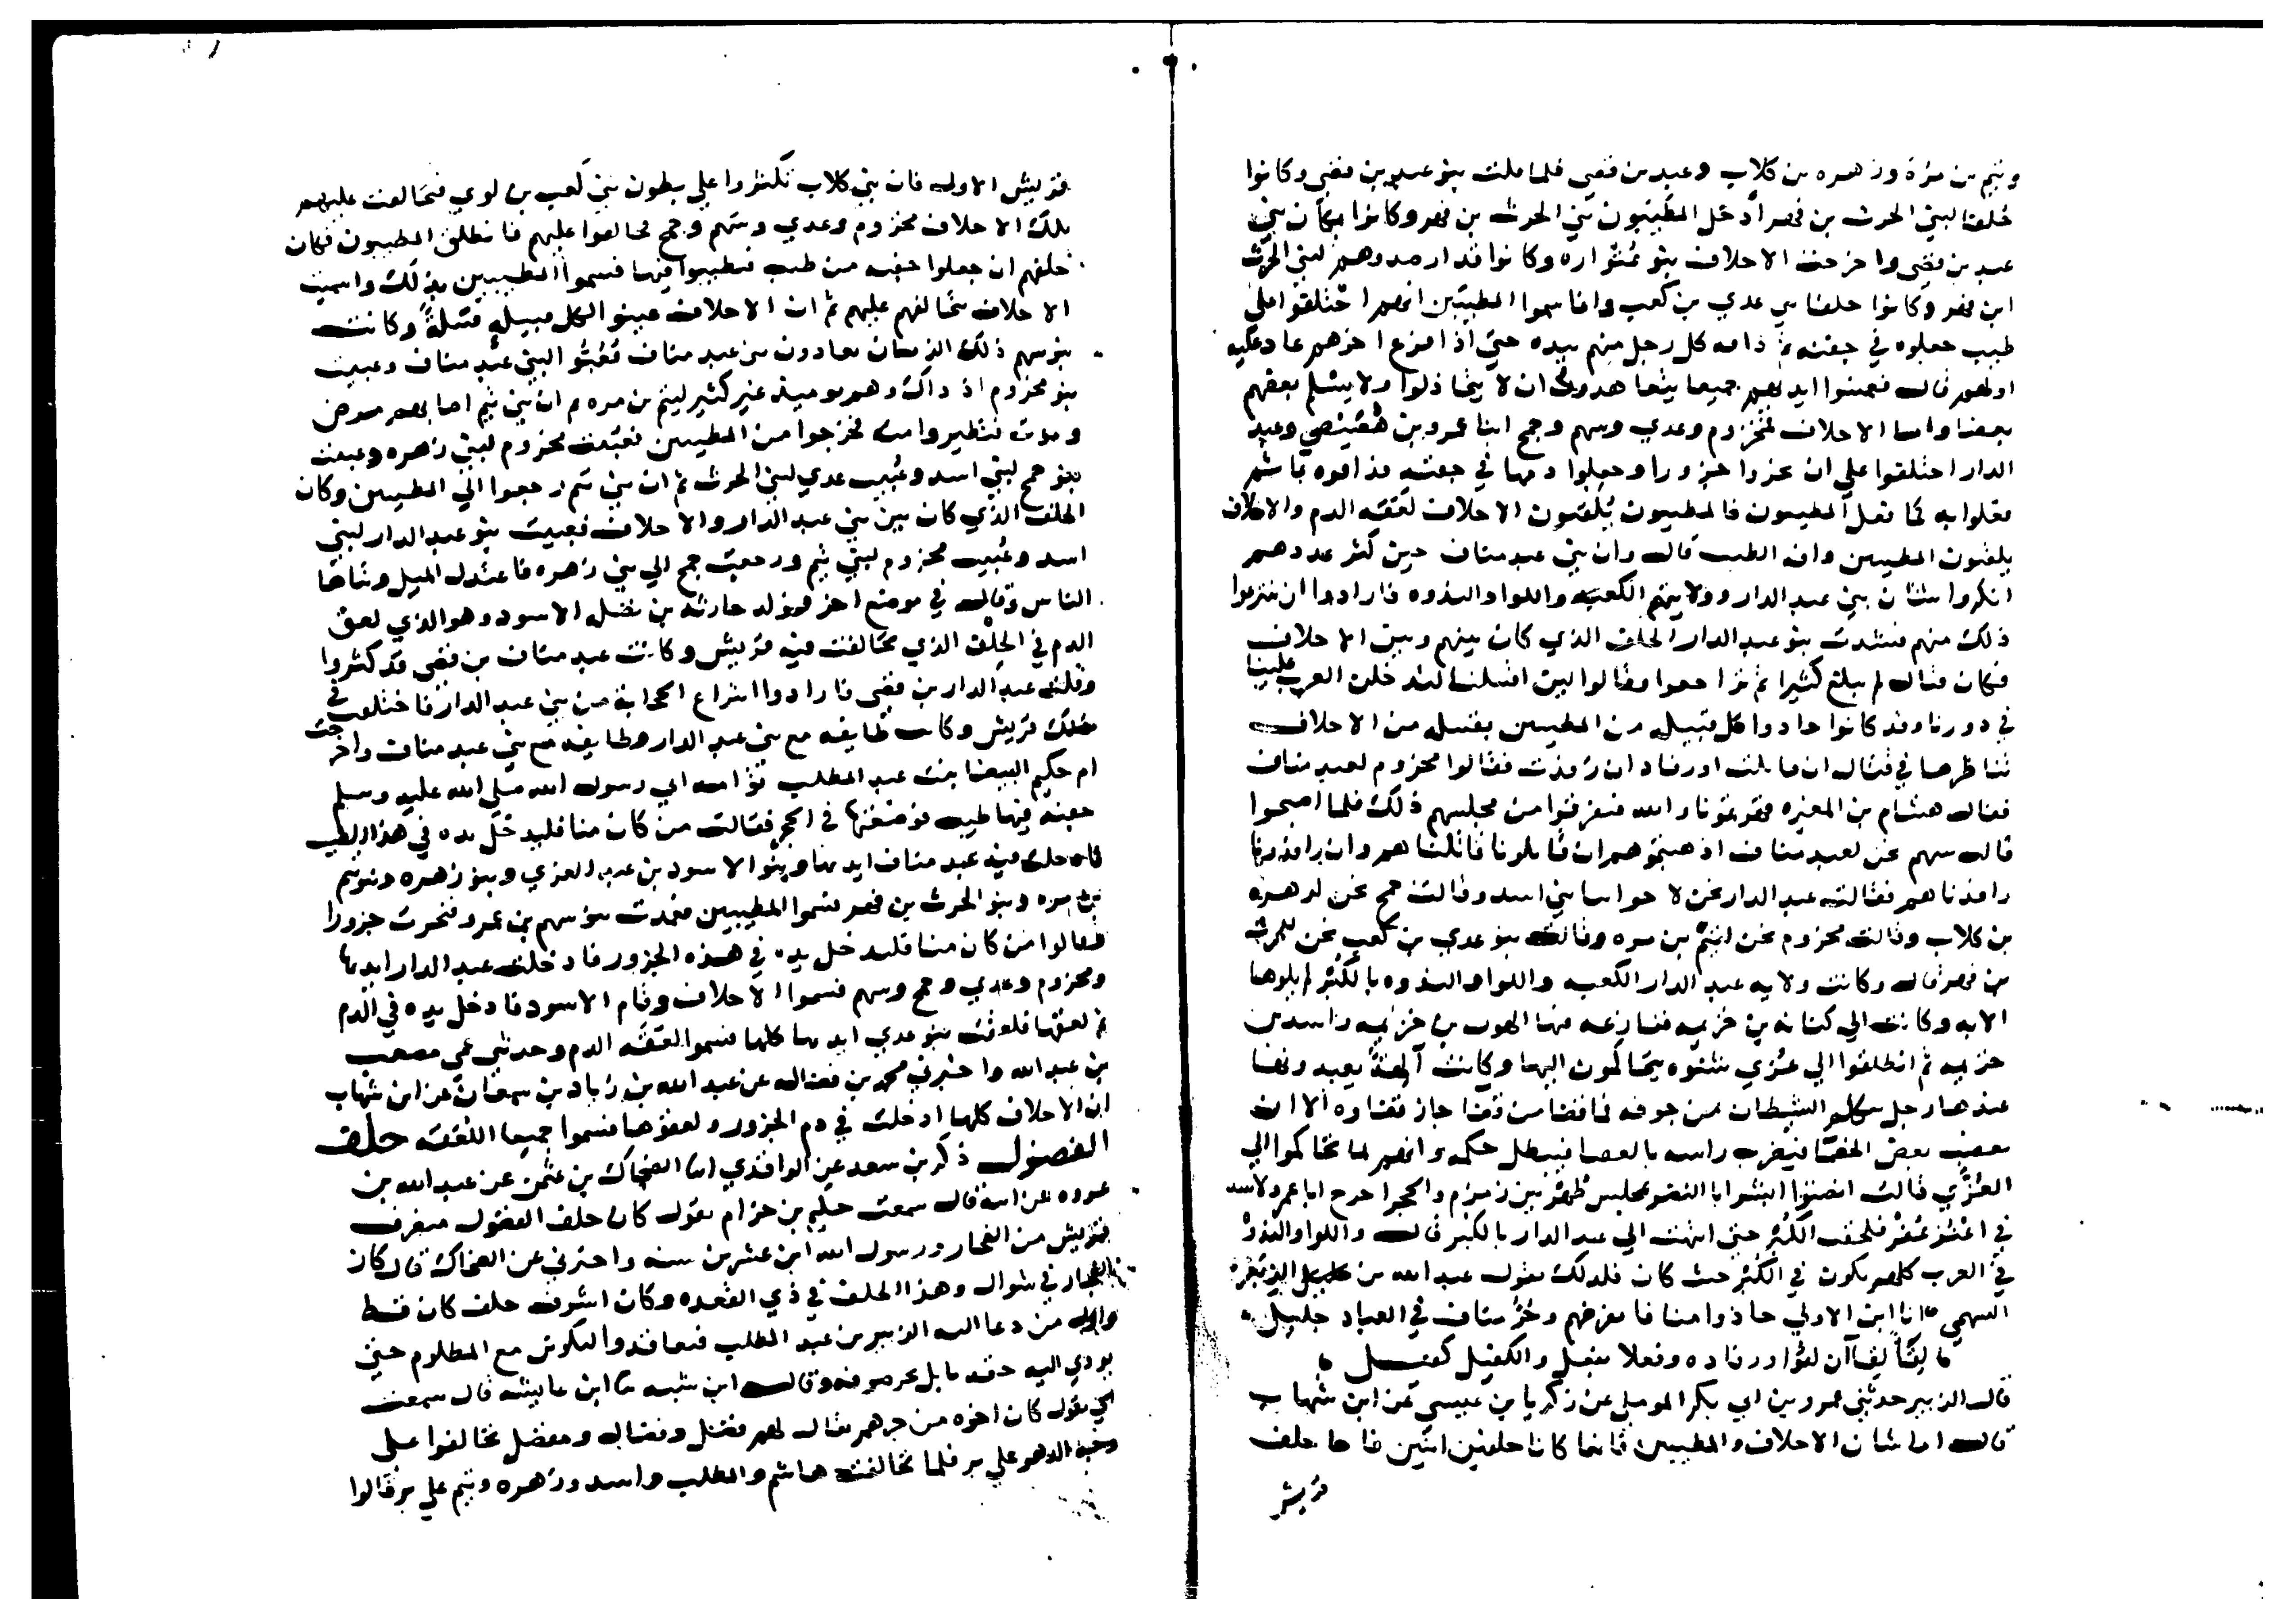 وتيم بن مرة وزهره بن كلاب وعبد بن قصي فلما ملت بنو عبد بن قصي وكانوا
حلفا لبني الحرث بن فهر ادخل المطيبون بني الحرث بن فهر وكانوا مكان بني
عبد بن قصي واخرجت الاحلاف بنو عتواره وكانوا قد ارصدوهم لبني الحرث
ابن فهر وكانوا حلفا بني عدي بن كعب وانما سموا المطيبين انهم اختلقوا على
طيب جعلوه في جفنه ثم ذافه كل رجل منهم بيده حتى اذا فرع اخرهم عاد عليه
اولهم قال فغمسوا ايديهم جميعا يتعاهدون ان لا يتخاذلوا ولا يسلم بعضهم
بعضا واما الاحلاف فمخزوم وعدي وسهم وجمح ابنا عمرو بن هصيص وعبد
الدار احتلفوا على ان نحروا جزورا وجعلوا دمها في جفنه فذافوه ثم
فعلوا به كما فعل المطيبون فالمطيبون يلقبون الاحلاف لعقه الدم والاحلاف
يلقبون المطيبين الطيب قال وان بني عبد مناف حين كثر عددهم
انكروا شان بني عبد الدار وولايتهم الكعبه واللوا والندوه فارادوا ان ينتزعوا
ذلك منهم فنشدت بنو عبد الدار الحلف الذي كان بينهم وبين الاحلاف
فكان قتال لم يبلغ كثيرا ثم تراجعوا وقالوا لين اقتتلنا لتدخلن العرب علينا
في دورنا وقد كانوا حادوا كل قبيله من المطيبين بقبيله من الاحلاف
تناظرها في قتال ان قاتلت او رفاد ان رفدت فقالوا مخزوم لعبد مناف
فقال هشام بن المغيره والله فتفرقوا من مجلسهم ذلك فلما اصبحوا
قال سهم نحن لعبد مناف اذهبتموهم ان قاتلونا قاتلناهم وان رافدونا
رافدناهم فقالت عبد الدار نحن لا بني اسد وقالت جمح نحن لزهره
بن كلاب وقالت مخزوم نحن لتيم بن مره وقالت بنو عدي بن كعب نحن للحرث
من فهر قال وكانت ولايه عبد الدار الكعبه واللوا والندوه بالكبر
الابه وكانت الى كنانه بن خزيمه فنازعه فيها الهون بن خزيمه واسد بن
خزيمه ثم انطلقوا الي عزي شنوه يتحاكمون اليها وكانت آلهة تعبد وفيها
عندها رجل يكلم الشيطان من جوفه فما قضا من قضا جاز قضاوه الا ان
يغضب بعض الخصما فيضرب راسه بالعصا فيبطل حكمه وانهم لما تحاكموا الي
العزي قالت انصتوا ابشروا ابا النضر مجلس ظهر بين زمزم والحجر اخرج ابا عمرو لاسد
في فلحقت الكبر حتى انتهت الي عبد الدار بالكبر قال واللوا والندوه
في العرب كلهم يكون في الكبر حيث كان فلذلك يقول عبد الله بن الزبعرى
السهمي انا ابن الاولي حادوا منافا بعزهم وحز مناف في العباد جليل
لقا لقا ان لقوا ورفاده وفعلا بفعل والكفيل كفيل
قال الزبير حدثني عمرو بن ابي بكر الموملي عن زكريا بن عيسى عن ابن شهاب
قال اما شان الاحلاف والمطيبين فانما كانا حلفين اثنين فاما حلف
قريش
قريش الاول فان بني كلاب تكثروا علي بطون بني كعب بن لوي فتحالفت عليهم
تلك الاحلاف مخزوم وعدي وسهم وجمح تحالفوا عليهم فانطلق المطيبون فكان
حلفهم ان جعلوا جفنه من طيب فتطيبوا فيها فسموا المطيبين بذلك واسميت
الاحلاف بتحالفهم عليهم ثم ان الاحلاف عبيوا لكل قبيله قبيلة وكانت
بنو سهم ذلك الزمان يعادون بني عبد مناف فعبوا لبني عبد مناف وعبيت
بنو مخزوم اذ ذاك وهم يوميذ غير كثير لتيم بن مره ثم ان بني تيم اصابهم مرض
وموت فتطيروا فخرجوا من المطيبين فعبيت مخزوم لبني زهره وعبيت
بنو جمح لبني اسد وعبيت عدي لبني الحرث ثم ان بني تيم رجعوا الي المطيبين وكان
الحلف الذي كان بين بني عبد الدار والاحلاف فعبيت بنو عبد الدار لبني
اسد وعبيت مخزوم لبني تيم ورجعت جمح الي بني زهره فاعتدل الميل وتناصا
الناس وقال في موضع اخر فولد حارثه بن نضله الاسود وهو الذي لعق
الدم في الحلف الذي تحالفت فيه قريش وكانت عبد مناف بن قصي قد كثروا
وقلت عبد الدار بن قصي فارادوا انتزاع الحجابه من بني عبد الدار فاختلفت في
ذلك قريش وكانت طايفه مع بني عبد الدار وطايفه مع بني عبد مناف واخرجت
ام حكيم البيضا بنت عبد المطلب توامه ابي رسول الله صلى الله عليه وسلم
جفنه فيها طيب فوضعتها في الحجر فقالت من كان منا فليدخل يده في هذا الطيب
فادخلت فيه عبد مناف ايديها وبنوا الاسود بن عبد العزي وبنو زهره وبنو تيم
بن مره وبنو الحرث بن فهر فسموا المطيبين فعمدت بنو سهم بن عمرو فنحرت جزورا
فقالوا من كان منا فليدخل يده في هذه الجزور فادخلت عبد الدار ايديها
ومخزوم وعدي وجمح وسهم فسموا الاحلاف وقام الاسود فادخل يده في الدم
ثم لعقها فلعقت بنو عدي ايديها كلها فسموا لعقه الدم وحدثني عمي مصعب
بن عبد الله واخبرني محمد بن فضاله عن عبد الله بن زياد بن سمعان عن ابن شهاب
ان الاحلاف كلها ادخلت في دم الجزور ولعقوها فسموا جميعا اللعقه حلف
الفضول ذكر بن سعد عن الواقدي انا الضحاك بن عثمن عن عبد الله بن
عروه عن ابيه قال سمعت حكيم بن حزام يقول كان حلف الفضول منصرف
قريش من الفجار ورسول الله ابن عشرين سنه واخبرني عن الضحاك قال كان
الفجار في شوال وهذا الحلف في ذي القعده وكان اشرف حلف كان قط
واول من دعا اليه الزبير بن عبد المطلب فتعاقدوا ليكونن مع المظلوم حتى
يودي اليه حقه ما بل بحر صوفه وقال ابن شبه ثنا ابن عايشه قال سمعت
ابي يقول كان اخوه من جرهم يقال لهم فضل وفضاله ومفضل تحالفوا على
وجه الدهر علي بر فلما تحالفت هاشم والمطلب واسد وزهره وتيم علي بر قالوا